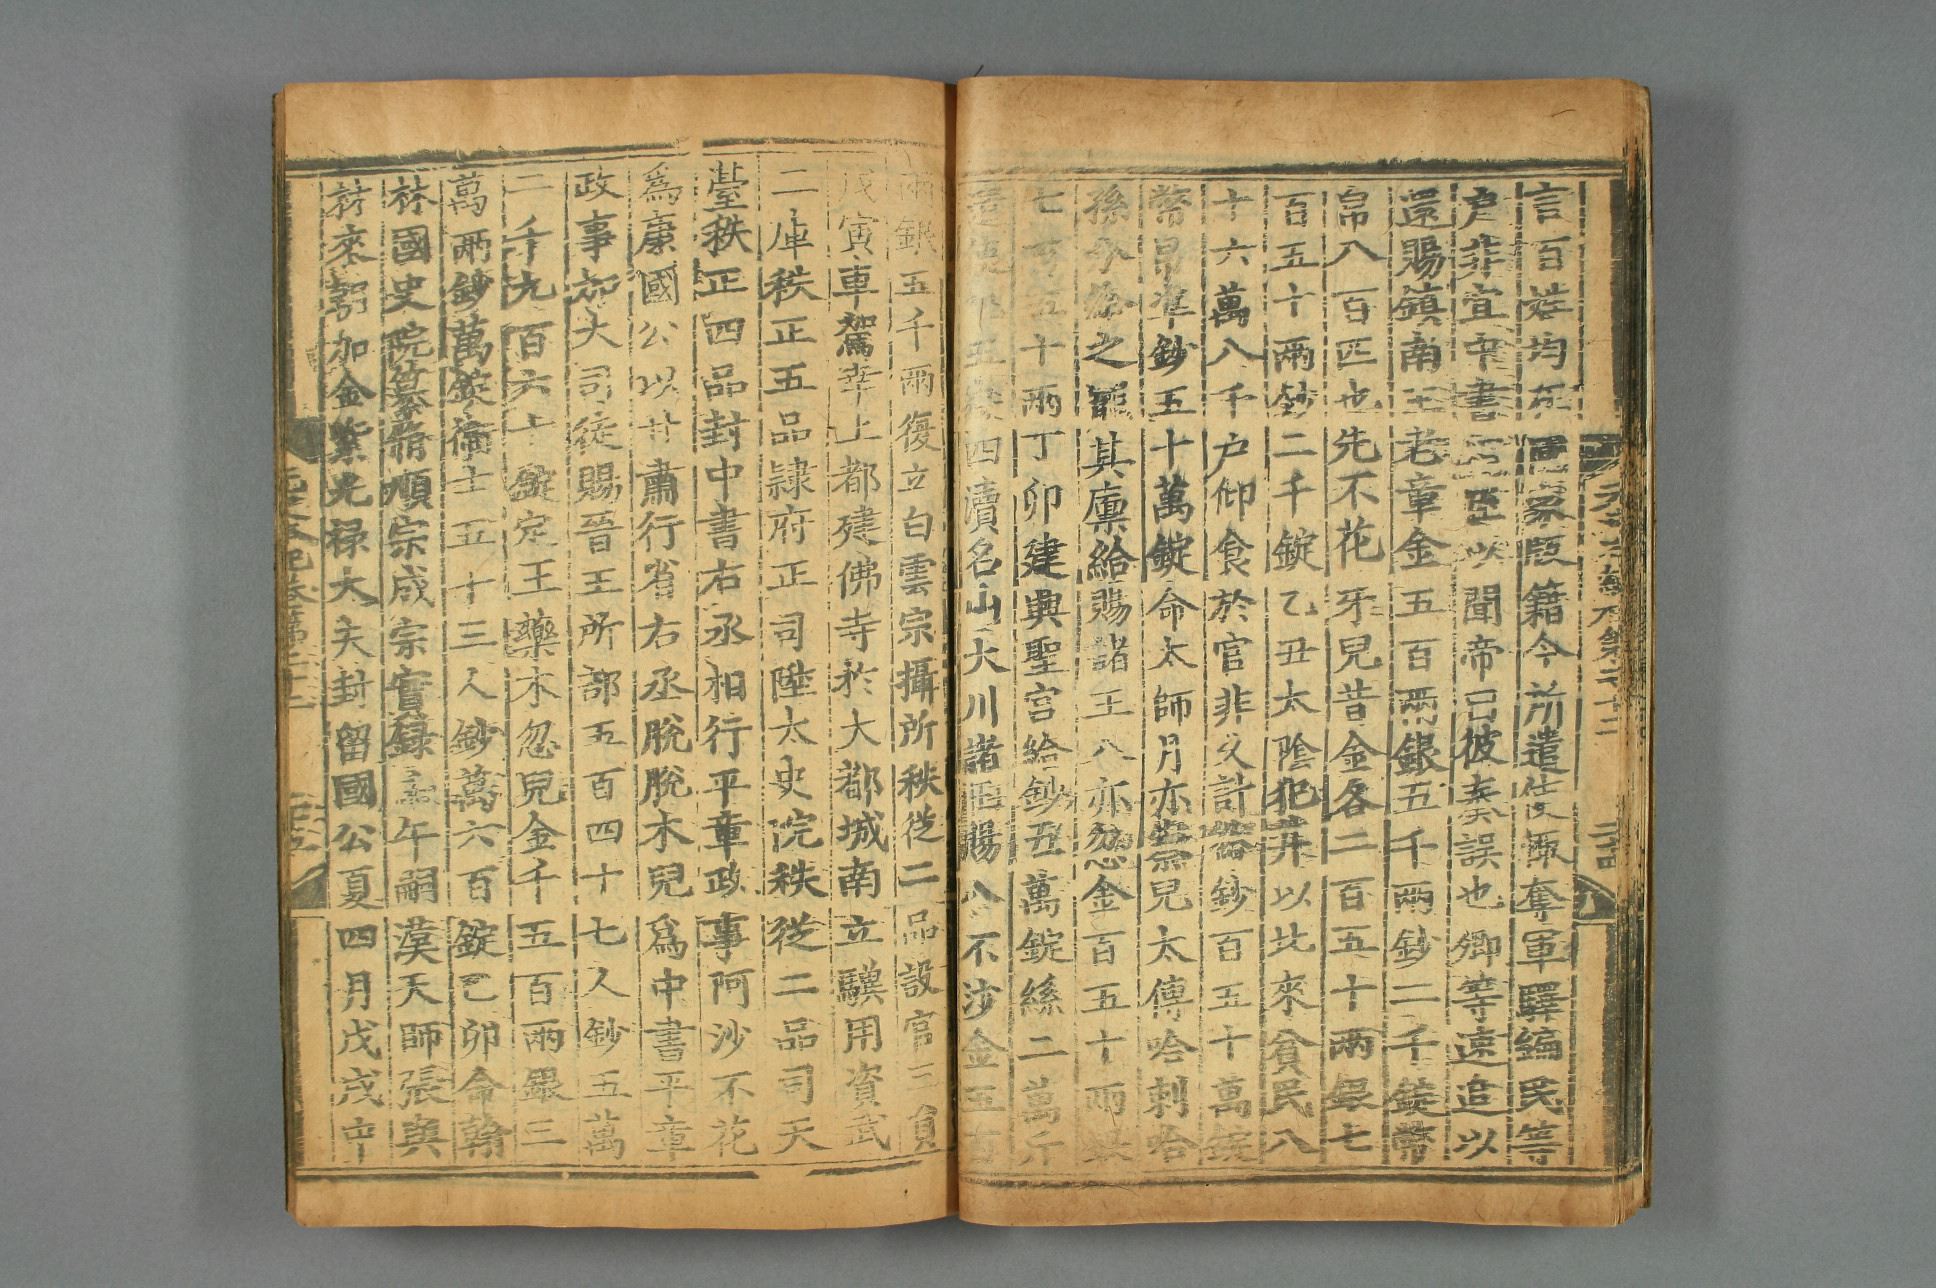 言百姓均在國家版籍今所遣使輒奪軍驛編民等
戶非宜中書臣以聞帝曰彼奏誤也卿等速追以
還賜鎮南王老章金五百兩銀五千兩鈔二千錠幣
帛八百匹也先不花牙兒昔金各二百五十兩銀七
百五十兩鈔二千錠乙丑太陰犯井以北來貧民八
十六萬八千戶仰食於官非久計給鈔百五十萬錠
幣帛準鈔五十萬錠命太師月赤察兒太傅哈剌哈
孫分給之罷其廩給賜諸王八亦忽金百五十兩銀
七百五十兩丁卯建興聖宮給鈔五萬錠絲二萬斤
遣使祀五嶽四瀆名山大川諸王賜八不沙金五百
兩銀五千兩復立白雲宗攝所秩從二品設官三員
戊寅車駕幸上都建佛寺於大都城南立驥用資武
二庫秩正五品隷府正司陞太史院秩從二品司天
臺秩正四品封中書右丞相行平章政事阿沙不花
爲康國公以甘肅行省右丞脫脫木兒爲中書平章
政事加大司徒賜晉王所部五百四十七人鈔五萬
二千九百六十錠定王藥木忽兒金千五百兩銀三
萬兩鈔萬錠衛士五十三人鈔萬六百錠己卯命翰
林國史院纂脩順宗成宗實錄壬午嗣漢天師張與
材來朝加金紫光祿大夫封留國公夏四月戊戌中